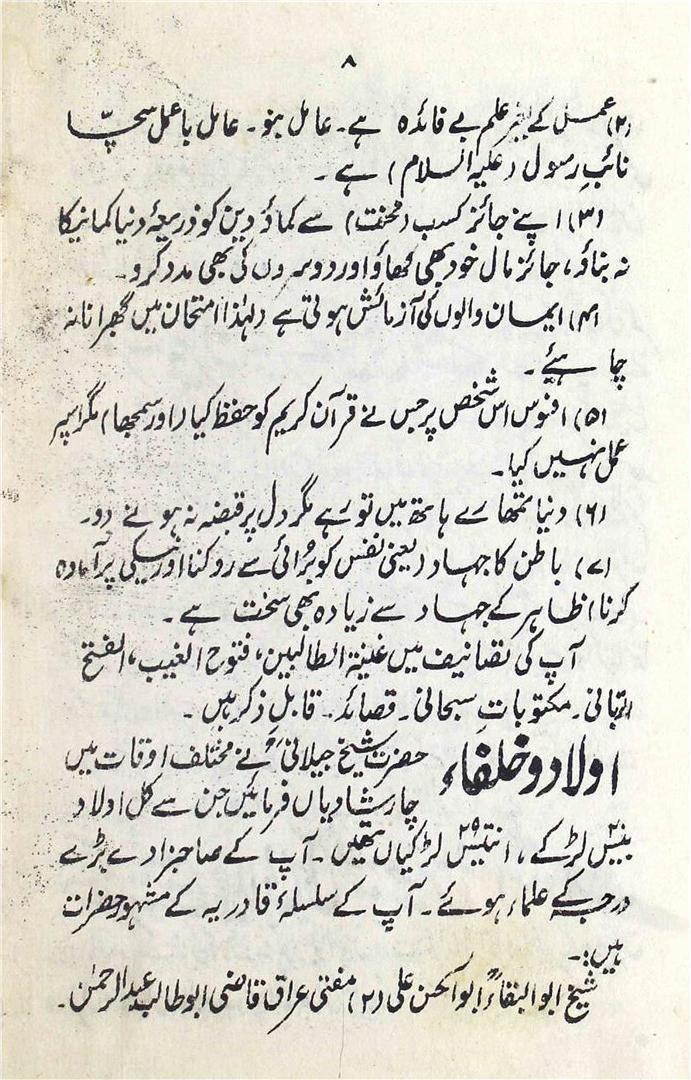 ۸
(۲) عمل کے بغیر علم بے فائدہ ہے۔ عامل بنو۔ عامل باعمل سچّا
نائبِ رسول (علیہ السلام) ہے۔
(۳) اپنے جائز کسب (محنت) سے کماؤ دین کو ذریعۂ دنیا کمانیکا
نہ بناؤ، جائز مال خود بھی کھاؤ اور دوسروں کی بھی مدد کرو۔
(۴) ایمان والوں کی آزمائش ہوتی ہے (لہٰذا امتحان میں گھبرانا نہ
چاہئیے۔
(۵) افسوس اس شخص پر جس نے قرآن کریم کو حفظ کیا (اور سمجھا) مگر اسپر
عمل نہیں کیا۔
(۶) دنیا تمھارے ہاتھ میں تو رہے مگر دل پر قبضہ نہ ہونے دو۔
(۷) باطن کا جہاد (یعنی نفس کو بُرائی سے روکنا اور نیکی پر آمادہ
کرنا) ظاہر کے جہاد سے زیادہ بھی سخت ہے۔
آپ کی تصانیف میں غنیۃ الطالبین، فتوح الغیب، الفتح
الربانی۔ مکتوباتِ سبحانی۔ قصائد۔ قابلِ ذکر ہیں۔
اولاد و خلفاء حضرت شیخ جیلانیؒ نے مختلف اوقات میں
چار شادیاں فرمائیں جن سے کل اولاد
بیس ۲۰ لڑکے، انتیس ۲۹ لڑکیاں تھیں۔ آپ کے صاحبزادے بڑے
درجہ کے علماء ہوئے۔ آپ کے سلسلۂ قادریہ کے مشہور حضرات
ہیں:۔
شیخ ابو البقاءؒ ابو الحسن علی (۲) مفتی عراق قاضی ابو طالب عبد الرحمٰن۔